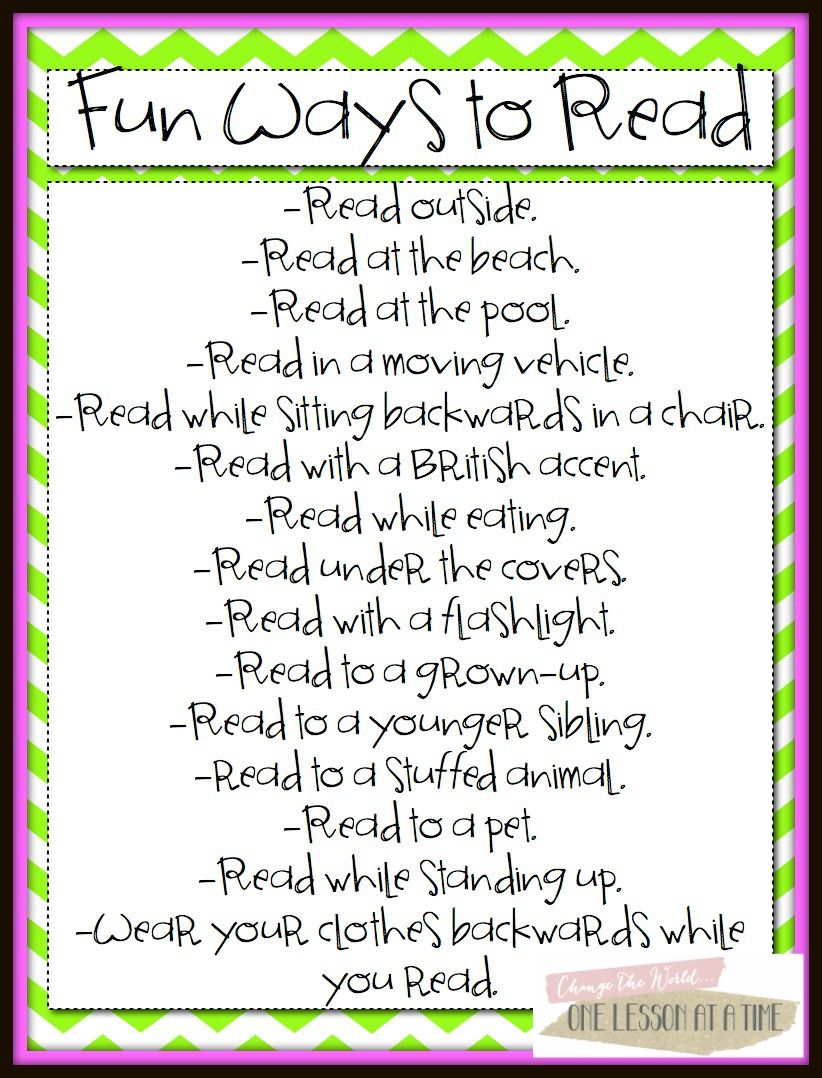 Fun Ways to Read
-Read outside.
-Read at the beach.
-Read at the pool.
-Read in a moving vehicle.
-Read while sitting backwards in a chair.
-Read with a British accent.
-Read while eating.
-Read under the covers.
-Read with a flashlight.
-Read to a grown-up.
-Read to a younger sibling.
-Read to a stuffed animal.
-Read to a pet.
-Read while standing up.
-Wear your clothes backwards while
you read.
Change The World...
ONE LESSON AT A TIME